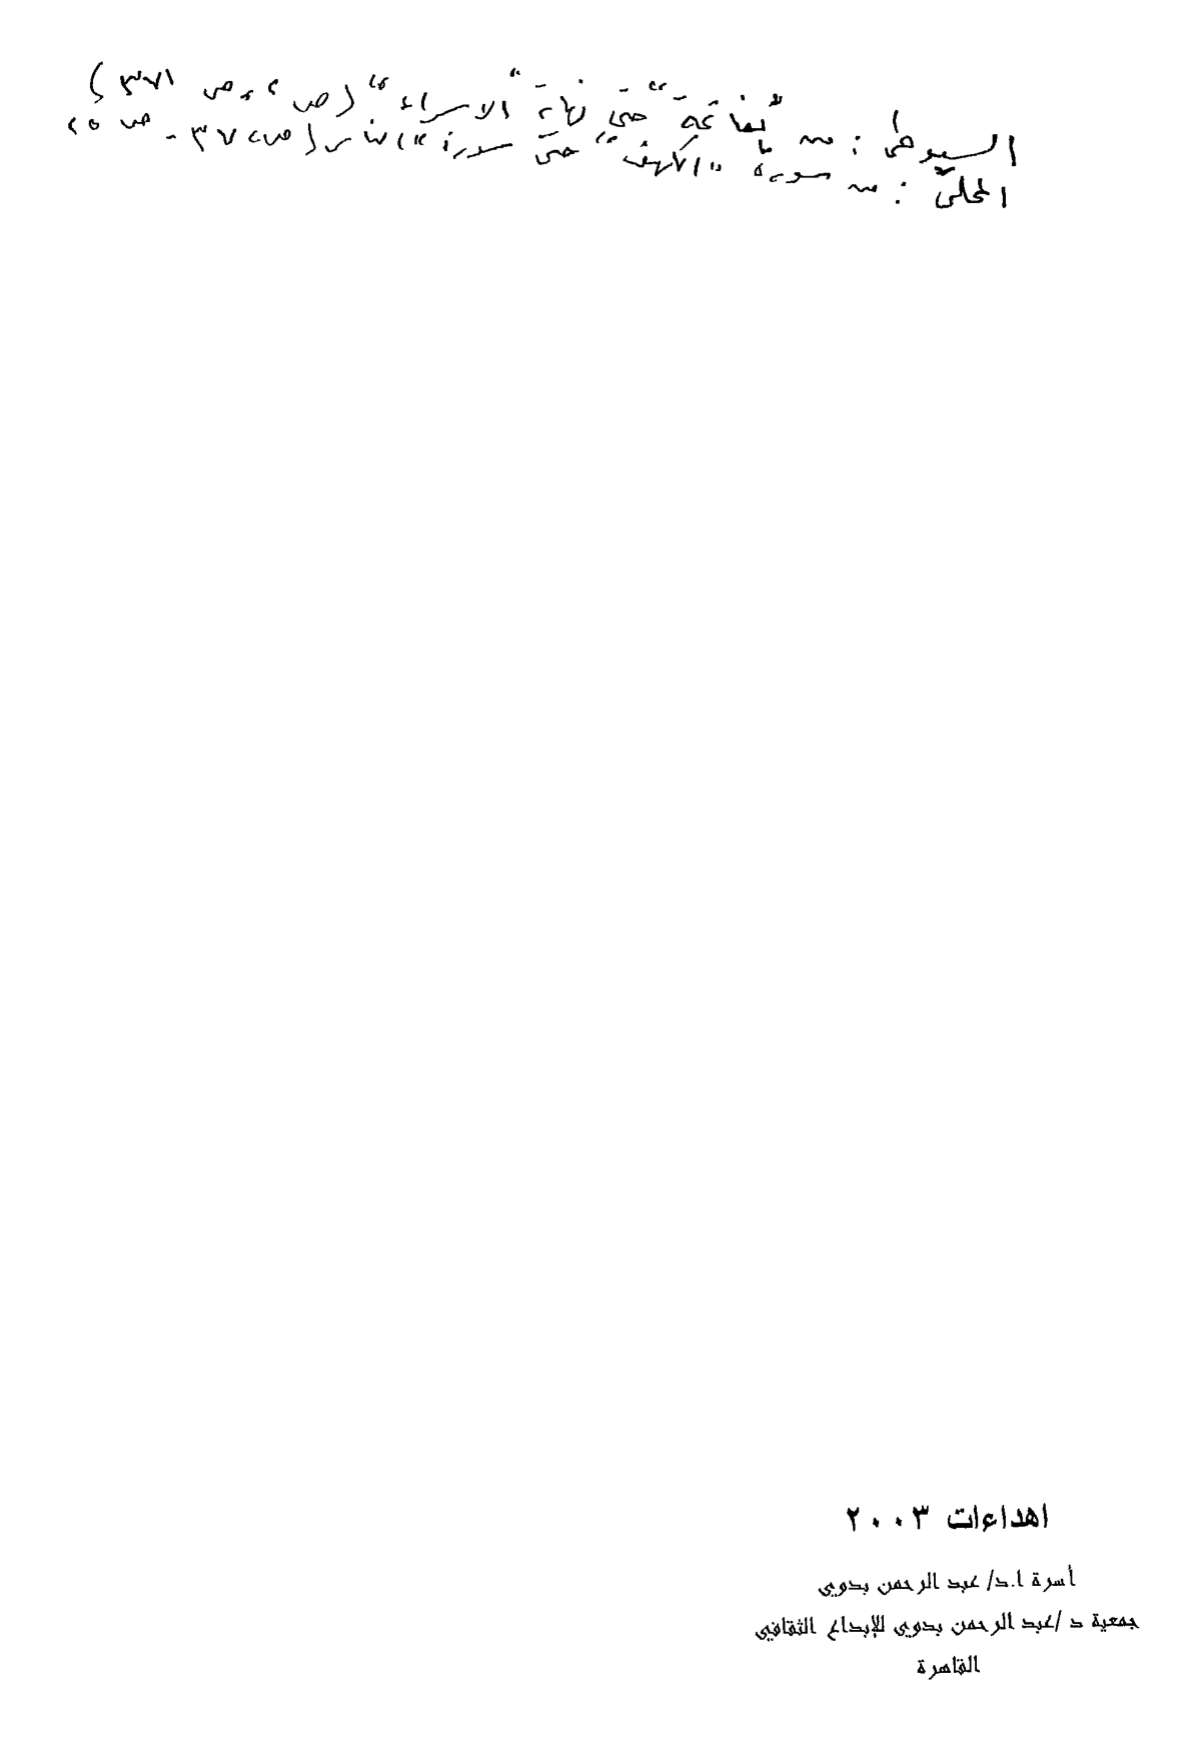 السيوطى : من الفاتحة " حتى نهاية " الاسراء " (ص ٢ ، ص ٣٧١)
المحلىّ : من سورة " الكهف " حتى سورة " الناس (ص ٣٧ - ص
اهداءات ٢٠٠٣
أسرة ا.د/ عبد الرحمن بدوي
جمعية د /عبد الرحمن بدوي للإبداع الثقافي
القاهرة